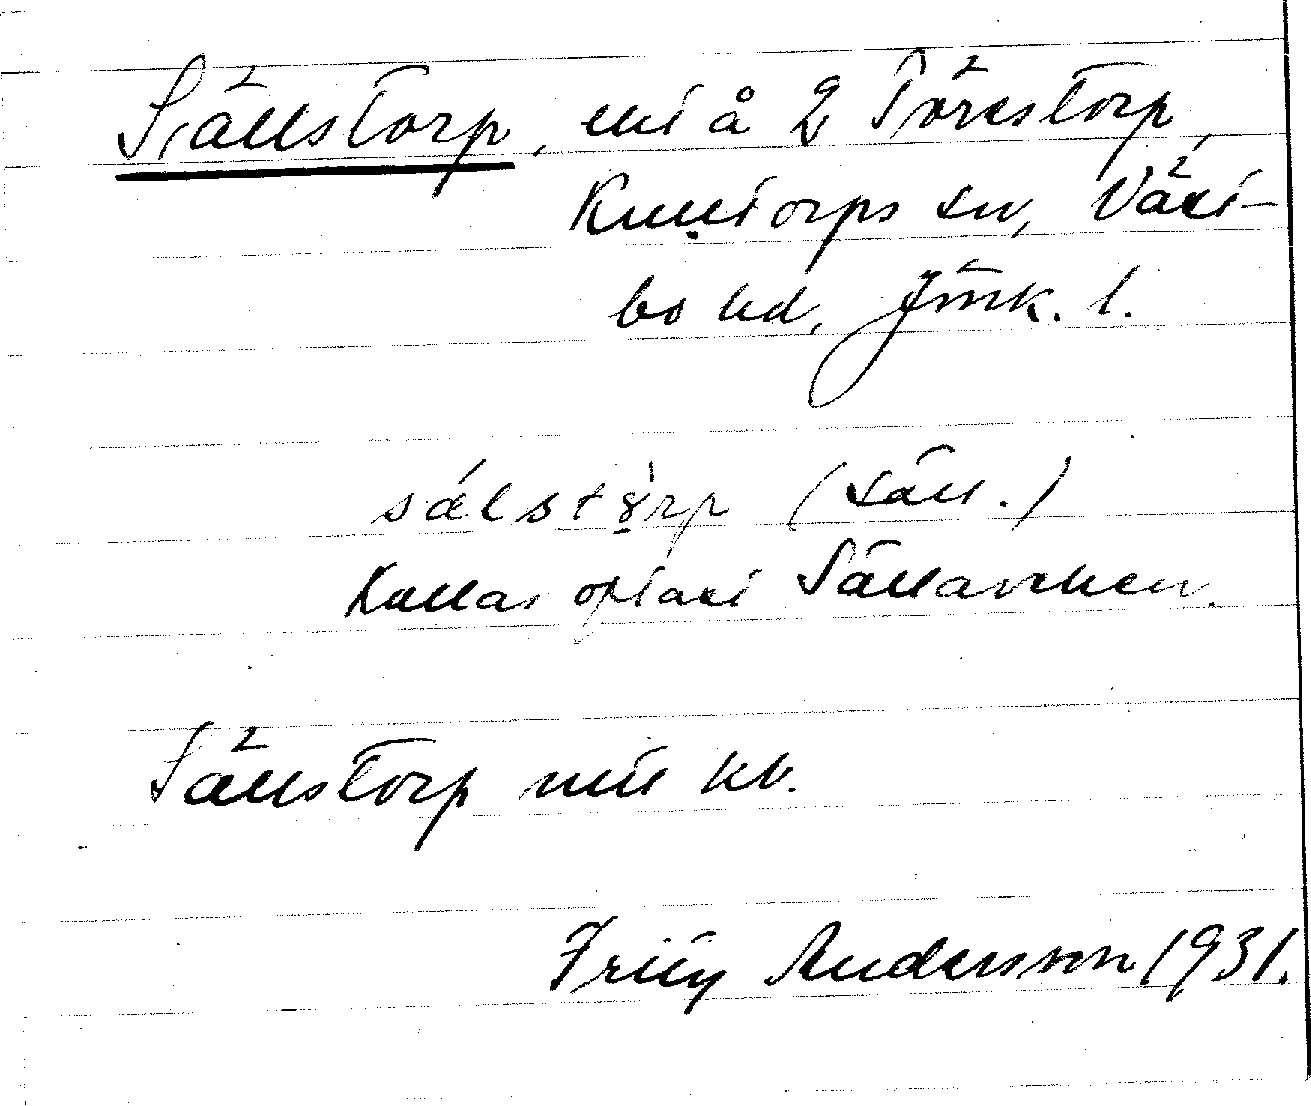 Sällstorp, ux å 2 Törestorp,
Kulltorps sn, Väst-
bo hd, Jönk. l.
sälstórp (säll.)
Kallas oftast Sällarehen.
Sällstorp enl kb.
Fritz Andersson 1931.